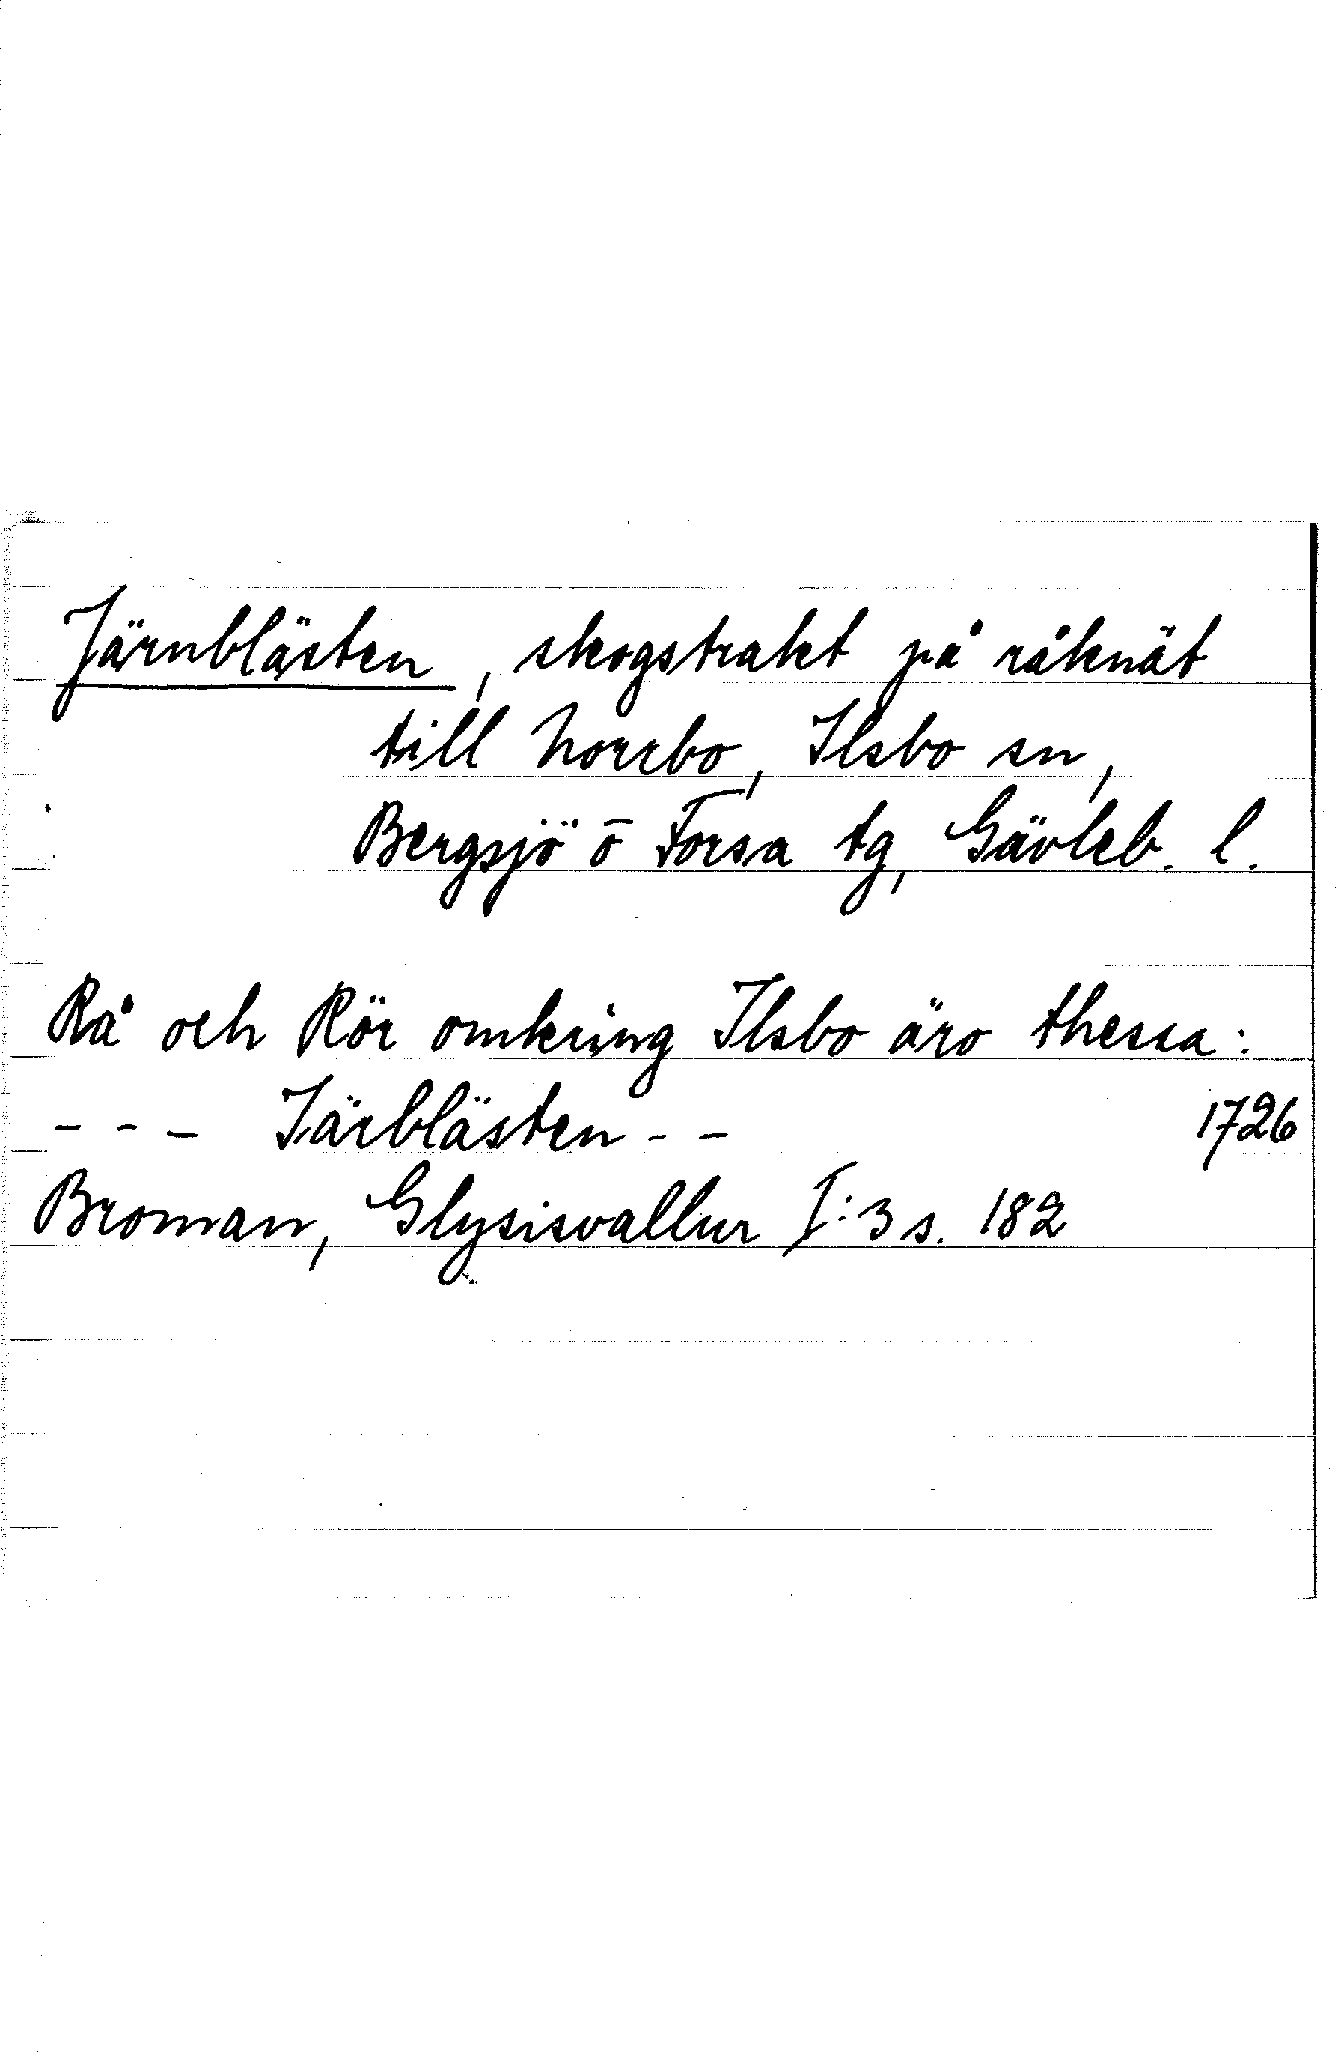 Järnblästen, skogstrakt på råknät
till Norrbo, Ilsbo sn,
Bergsjö o Forsa tg, Gävleb. l.
Rå och Rör omkring Ilsbo äro thessa:
- - - Järblästen - - 1726
Broman, Glysisvallur I:3 s. 182